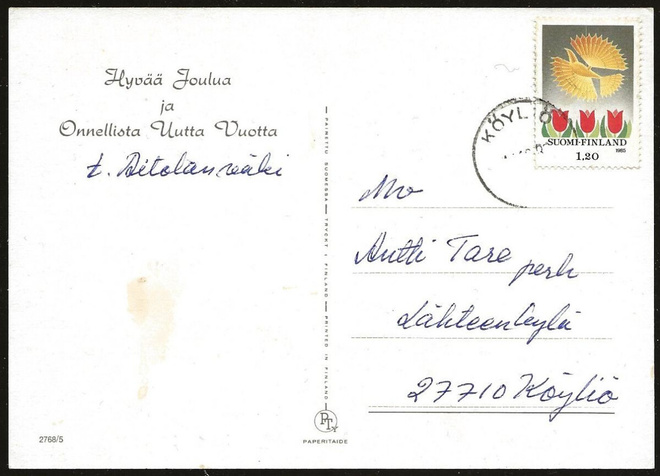 Hyvää Joulua
ja
Onnellista Uutta Vuotta
t. Aitolanväki
PAINETTU SUOMESSA – TRYCKT I FINLAND – PRINTED IN FINLAND
KÖYLIÖ
SUOMI-FINLAND
1.20 1985
Mv
Antti Tare perh
Lähteenkylä
27710 Köyliö
PT
PAPERITAIDE
2768/5